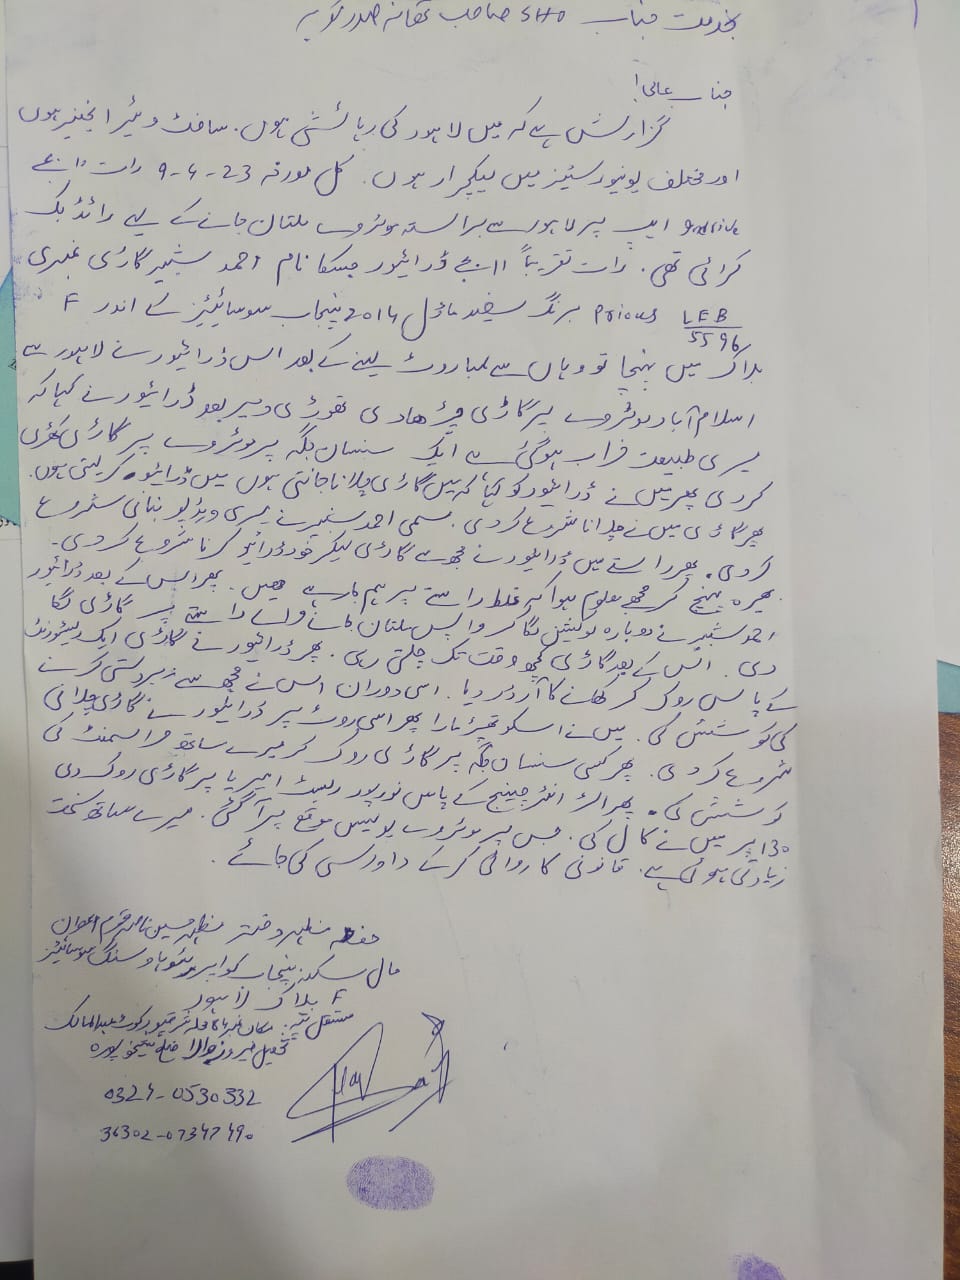 بخدمت جناب SHO صاحب تھانہ صدر گوجرہ
جناب عالی!
گزارش ہے کہ میں لاہور کی رہائشی ہوں۔ سافٹ ویئر انجینر ہوں
اور مختلف یونیورسٹیز میں لیکچرار ہوں۔ کل مورخہ 23-4-9 رات 10 بجے
indrive ایپ پر لاہور سے براستہ موٹروے ملتان جانے کے لیے رائڈ بک
کرائی تھی۔ رات تقریباً 11 بجے ڈرائیور جسکا نام احمد شبیر گاڑی نمبری
LEB 5596 Prious برنگ سفید ماڈل 2014 پنجاب سوسائیٹیز کے اندر F
بلاک میں پہنچا تو وہاں سے لمبا روٹ لینے کے بعد اس ڈرائیور نے لاہور سے
اسلام آباد موٹروے پر گاڑی چڑھا دی تھوڑی دیر بعد ڈرائیور نے کہا کہ
میری طبیعت خراب ہو گئی ہے ایک سنسان جگہ پر موٹروے پر گاڑی کھڑی
کر دی پھر میں نے ڈرائیور کو کہا کہ میں گاڑی چلانا جانتی ہوں میں ڈرائیو کر لیتی ہوں۔
پھر گاڑی میں نے چلانا شروع کر دی۔ مسمی احمد شبیر نے میری ویڈیو بنانی شروع
کر دی۔ پھر راستے میں ڈرائیور نے مجھ سے گاڑی لیکر خود ڈرائیو کرنا شروع کر دی۔
بھیرہ پہنچ کر مجھے معلوم ہوا کہ غلط راستے پر ہم جا رہے ہیں۔ پھر اس کے بعد ڈرائیور
احمد شبیر نے دوبارہ لوکیشن لگا کر واپس ملتان جانے والے راستے پر گاڑی لگا
دی۔ اس کے بعد گاڑی کچھ وقت تک چلتی رہی۔ پھر ڈرائیور نے گاڑی ایک ریسٹورنٹ
کے پاس روک کر کھانے کا آرڈر دیا۔ اسی دوران اس نے مجھ سے زبردستی کرنے
کی کوشش کی۔ میں نے اسکو تھپڑ مارا پھر اسی روٹ پر ڈرائیور نے گاڑی چلانی
شروع کر دی۔ پھر کسی سنسان جگہ پر گاڑی روک کر میرے ساتھ ہراسمنٹ کی
کوشش کی۔ پھر انٹر چینج کے پاس نور پور ریسٹ ایریا پر گاڑی روک دی
130 پر میں نے کال کی۔ جس پر موٹروے پولیس موقع پر آ گئی۔ میرے ساتھ سخت
زیادتی ہوئی ہے۔ قانونی کاروائی کر کے دادرسی کی جائے۔
مظہر دختر مظہر حسین قوم اعوان
حال سکنہ پنجاب کواپریٹو ہاوسنگ سوسائیٹیز
F بلاک لاہور
مستقل پتہ: مکان نمبر محلہ شرقپور کوٹ عبدالمالک
تحصیل فیروز والا ضلع شیخوپورہ
0324-0530332
36302-0734749۰